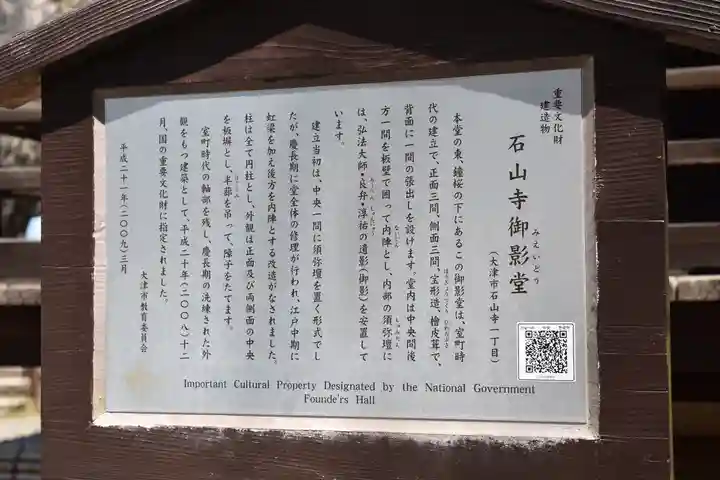 重要文化財
建造物
石山寺御影堂
みえいどう
（大津市石山寺一丁目）
本堂の東、鐘桜の下にあるこの御影堂は、室町時
代の建立で、正面三間、側面三間、宝形造、檜皮葺で、
背面に一間の張出しを設けます。堂内は中央間後
方一間を板壁で囲って内陣とし、内部の須弥壇に
は、弘法大師・良弁・淳祐の遺影（御影）を安置して
います。
建立当初は、中央一間に須弥壇を置く形式でし
たが、慶長期に堂全体の修理が行われ、江戸中期に
虹梁を加え後方を内陣とする改造がなされました。
柱は全て円柱とし、外観は正面及び両側面の中央
を板塀とし、半蔀を吊って、障子をたてます。
室町時代の軸部を残し、慶長期の洗練された外
観をもつ建築として、平成二十年（二〇〇八）十二
月、国の重要文化財に指定されました。
平成二十一年（二〇〇九）三月
大津市教育委員会
Important Cultural Property Designated by the National Government
Founde'rs Hall